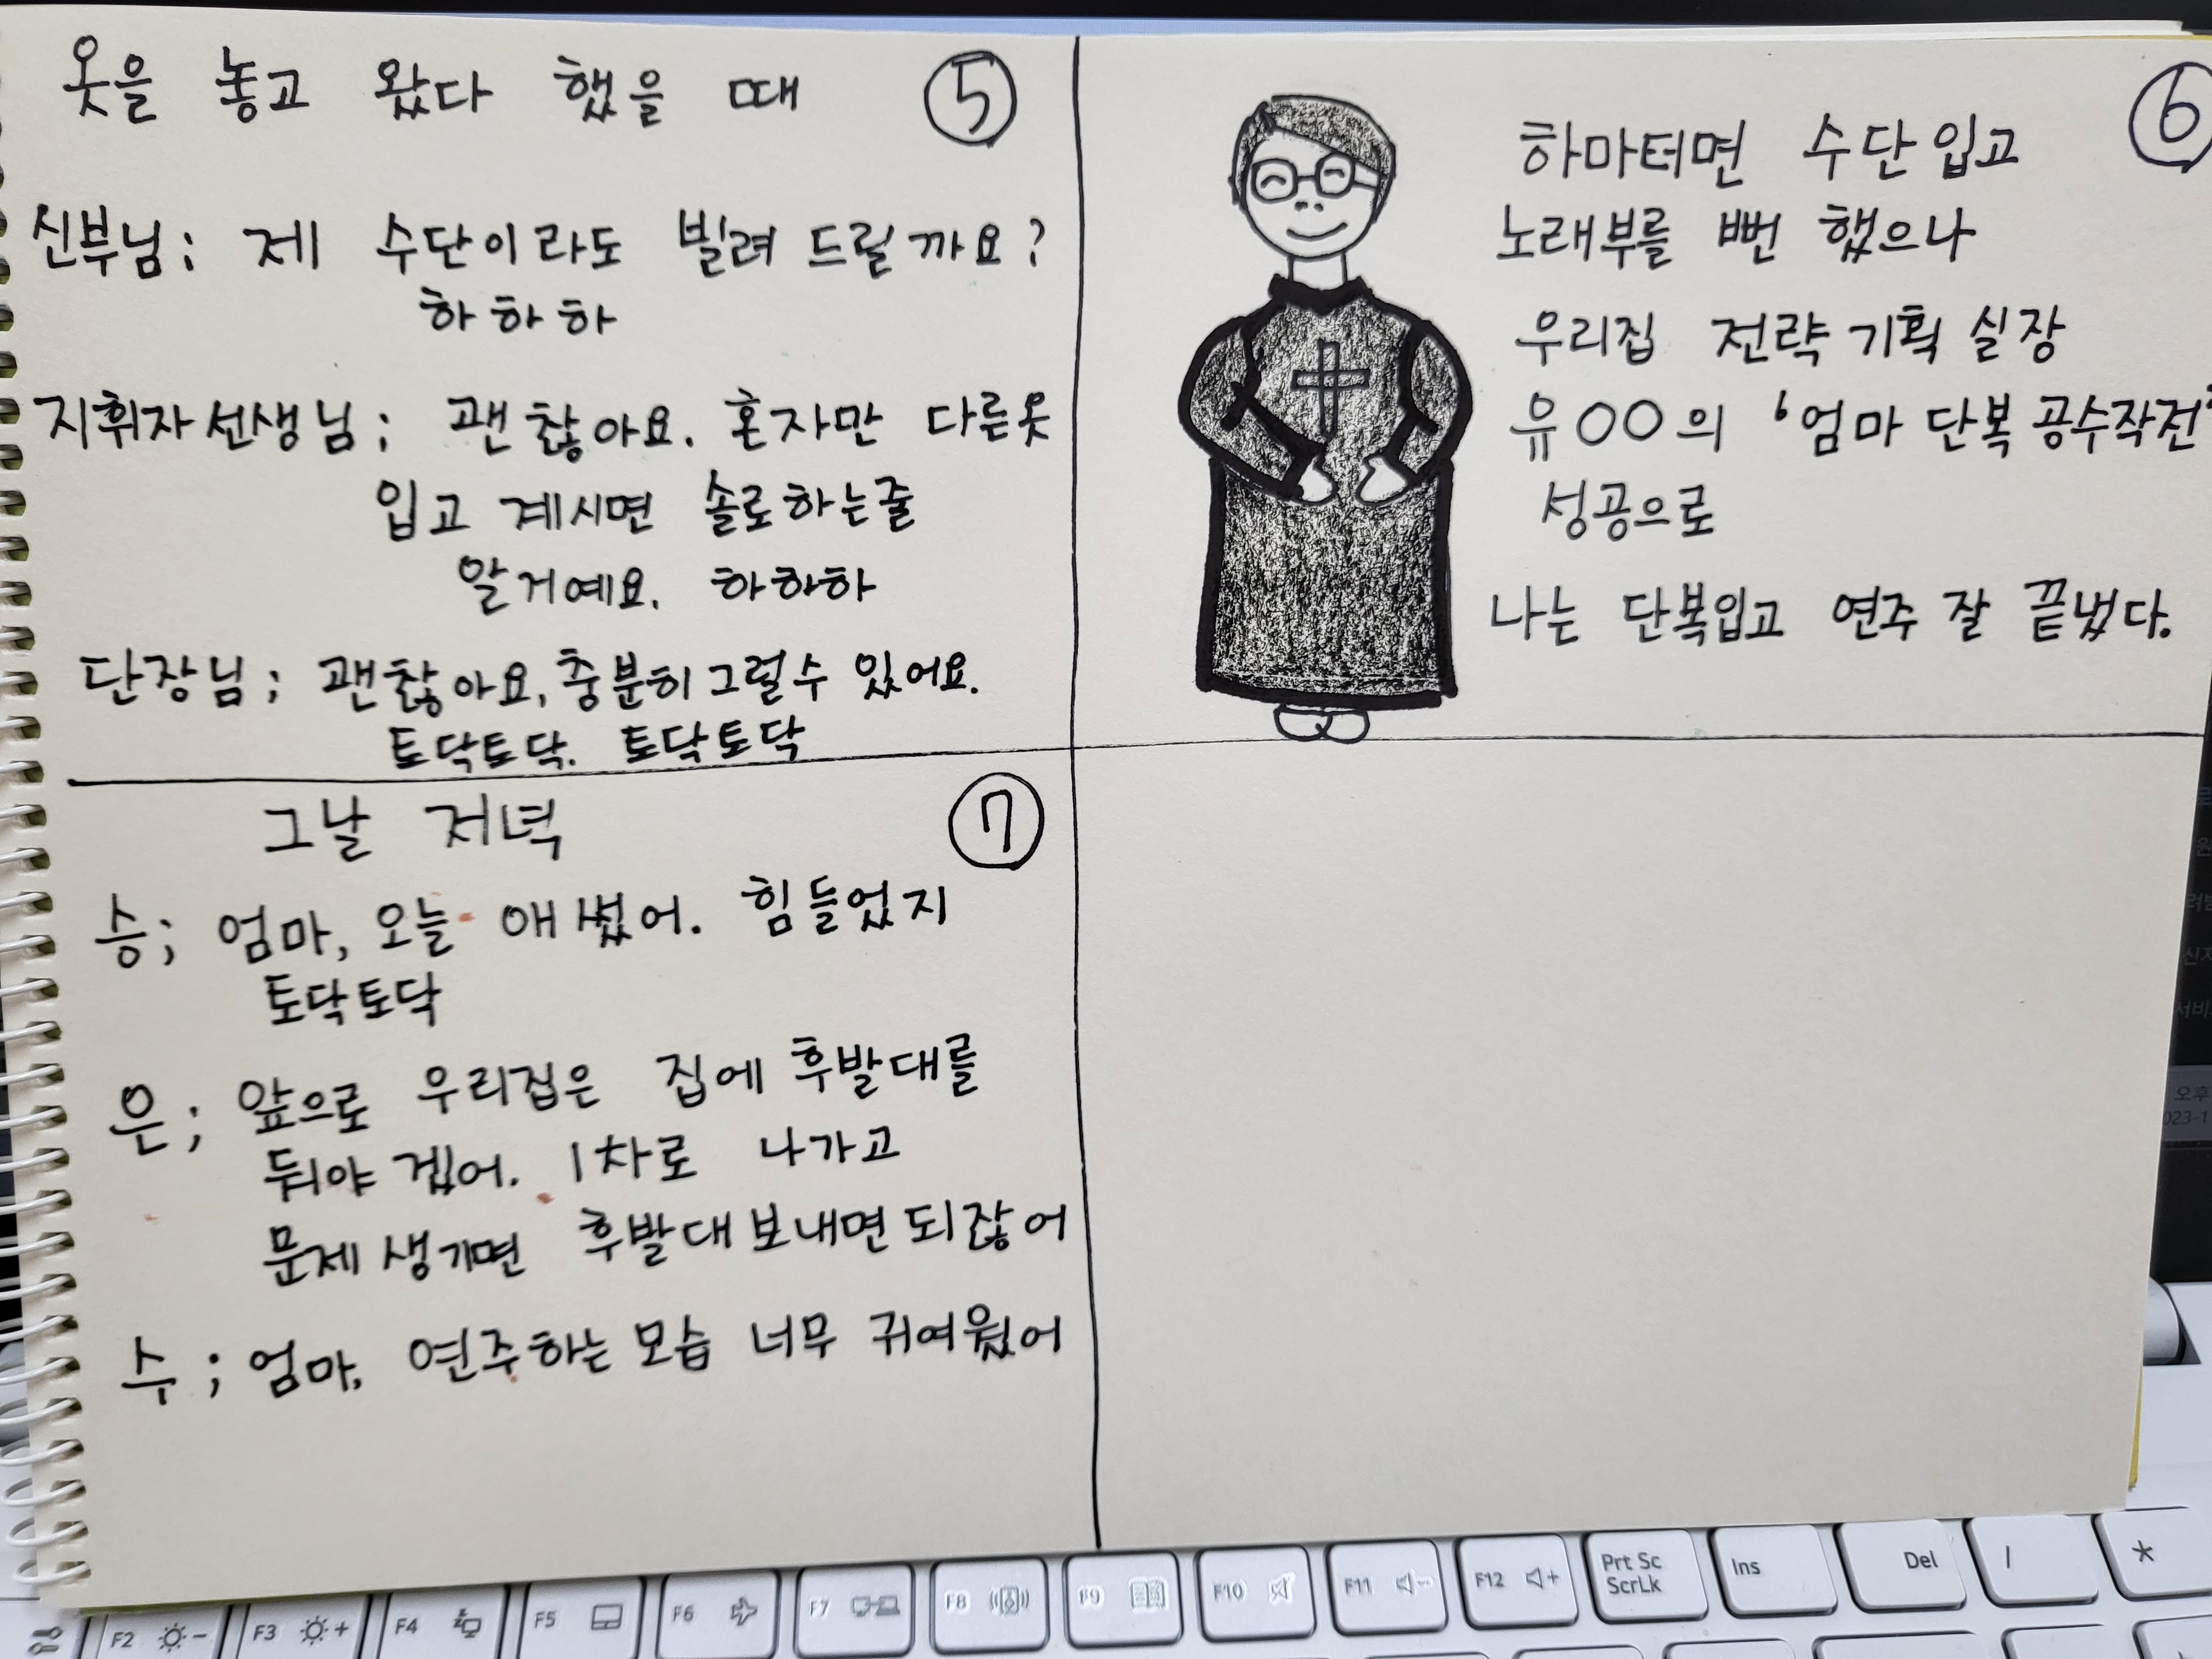 옷을 놓고 왔다 했을 때 ⑤
신부님; 제 수단이라도 빌려 드릴까요?
하하하
지휘자 선생님; 괜찮아요. 혼자만 다른옷
입고 계시면 솔로하는줄
알거예요. 하하하
단장님; 괜찮아요, 충분히 그럴수 있어요.
토닥토닥. 토닥토닥
⑥
하마터면 수단입고
노래부를 뻔 했으나
우리집 전략기획 실장
유○○의 '엄마 단복 공수작전'
성공으로
나는 단복입고 연주 잘 끝냈다.
그날 저녁 ⑦
승; 엄마, 오늘 애썼어. 힘들었지
토닥토닥
은; 앞으로 우리집은 집에 후발대를
둬야 겠어. 1차로 나가고
문제 생기면 후발대 보내면 되잖어
수; 엄마, 연주하는 모습 너무 귀여웠어
F2
F3
F4
F5
F6
F7
F8
F9
F10
F11
F12
Prt Sc
ScrLk
Ins
Del
/
*
오후